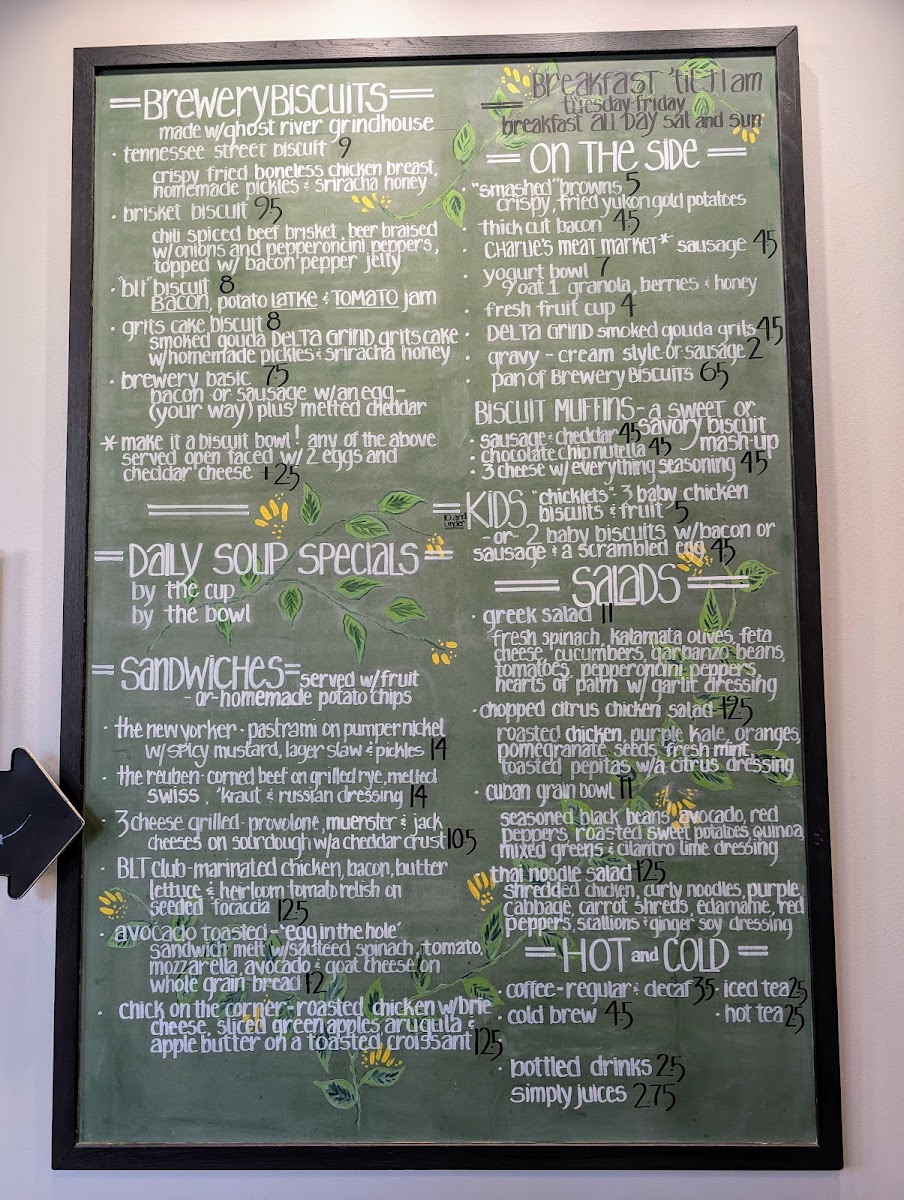 BREWERY BISCUITS
made w/ghost river grindhouse
· tennessee street biscuit 9
crispy fried boneless chicken breast,
homemade pickles & sriracha honey
· brisket biscuit 95
chili spiced beef brisket, beer braised
w/onions and pepperoncini peppers,
topped w/ bacon pepper jelly
· "blt" biscuit 8
BACON, potato LATKE & TOMATO jam
· grits cake biscuit 8
smoked gouda DELTA GRIND grits cake
w/homemade pickles & sriracha honey
· brewery basic 75
bacon or sausage w/an egg-
(your way) plus melted cheddar
* make it a biscuit bowl! any of the above
served open faced w/ 2 eggs and
cheddar cheese +25
DAILY SOUP SPECIALS
by the cup
by the bowl
SANDWICHES served w/fruit
-or- homemade potato chips
· the new yorker - pastrami on pumpernickel
w/spicy mustard, lager slaw & pickles 14
· the reuben - corned beef on grilled rye, melted
swiss, 'kraut & russian dressing 14
· 3 cheese grilled - provolone, muenster & jack
cheeses on sourdough w/a cheddar crust 105
· BLT club - marinated chicken, bacon, butter
lettuce & heirloom tomato relish on
seeded focaccia 125
· avocado toasted - "egg in the hole"
sandwich melt w/sautéed spinach, tomato,
mozzarella, avocado & goat cheese on
whole grain bread 12
· chick on the corner - roasted chicken w/brie
cheese, sliced green apples, arugula &
apple butter on a toasted croissant 125
Breakfast 'til 11am
tuesday friday
breakfast all day sat and sun
ON THE SIDE
· "smashed" browns 5
crispy, fried yukon gold potatoes
· thick cut bacon 45
· CHARLIE'S MEAT MARKET* sausage 45
· yogurt bowl 7
9 oat 1 granola, berries & honey
· fresh fruit cup 4
· DELTA GRIND smoked gouda grits 45
· gravy - cream style or sausage 2
· pan of BREWERY BISCUITS 65
BISCUIT MUFFINS - a sweet or
savory biscuit
mash-up
· sausage & cheddar 45
· chocolate chip nutella 45
· 3 cheese w/everything seasoning 45
10 and under KIDS "chicklets" - 3 baby chicken
biscuits & fruit 5
-or- 2 baby biscuits w/bacon or
sausage & a scrambled egg 45
SALADS
· greek salad 11
fresh spinach, kalamata olives, feta
cheese, cucumbers, garbanzo beans,
tomatoes, pepperoncini peppers,
hearts of palm w/ garlic dressing
· chopped citrus chicken salad 125
roasted chicken, purple kale, oranges,
pomegranate seeds, fresh mint,
toasted pepitas w/a citrus dressing
· cuban grain bowl 11
seasoned black beans, avocado, red
peppers, roasted sweet potatoes quinoa,
mixed greens & cilantro lime dressing
· thai noodle salad 125
shredded chicken, curly noodles, purple
cabbage, carrot shreds, edamame, red
peppers, stallions & ginger soy dressing
HOT and COLD
· coffee - regular & decaf 35 · iced tea 25
· cold brew 45 · hot tea 25
· bottled drinks 25
simply juices 2.75